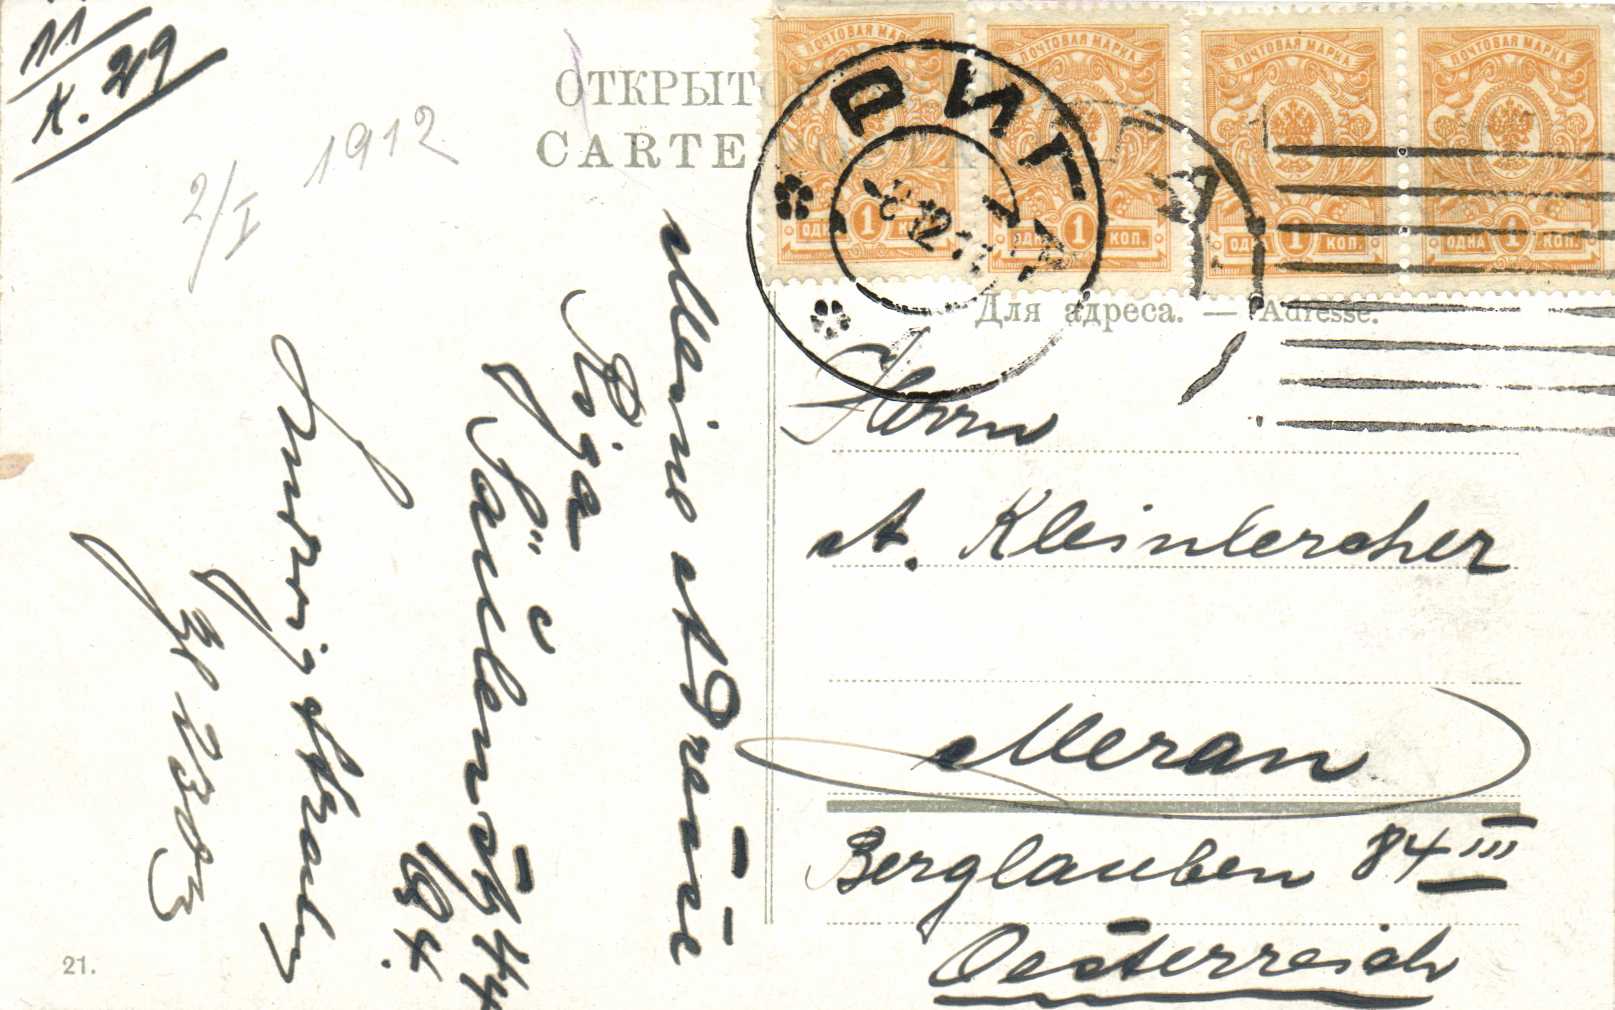 11
X. 29
2/I 1912
ОТКРЫТО
CARTE POSTA
ПОЧТОВАЯ МАРКА
ОДНА 1 КОП.
ПОЧТОВАЯ МАРКА
ОДНА 1 КОП.
ПОЧТОВАЯ МАРКА
ОДНА 1 КОП.
ПОЧТОВАЯ МАРКА
ОДНА 1 КОП.
РИГА
12
Для адреса. — Adresse.
Herrn
A. Kleinlercher
Meran
Berglauben 84 III
Oesterreich
Meine Adresse
Riga
Säulenstr 44
21.